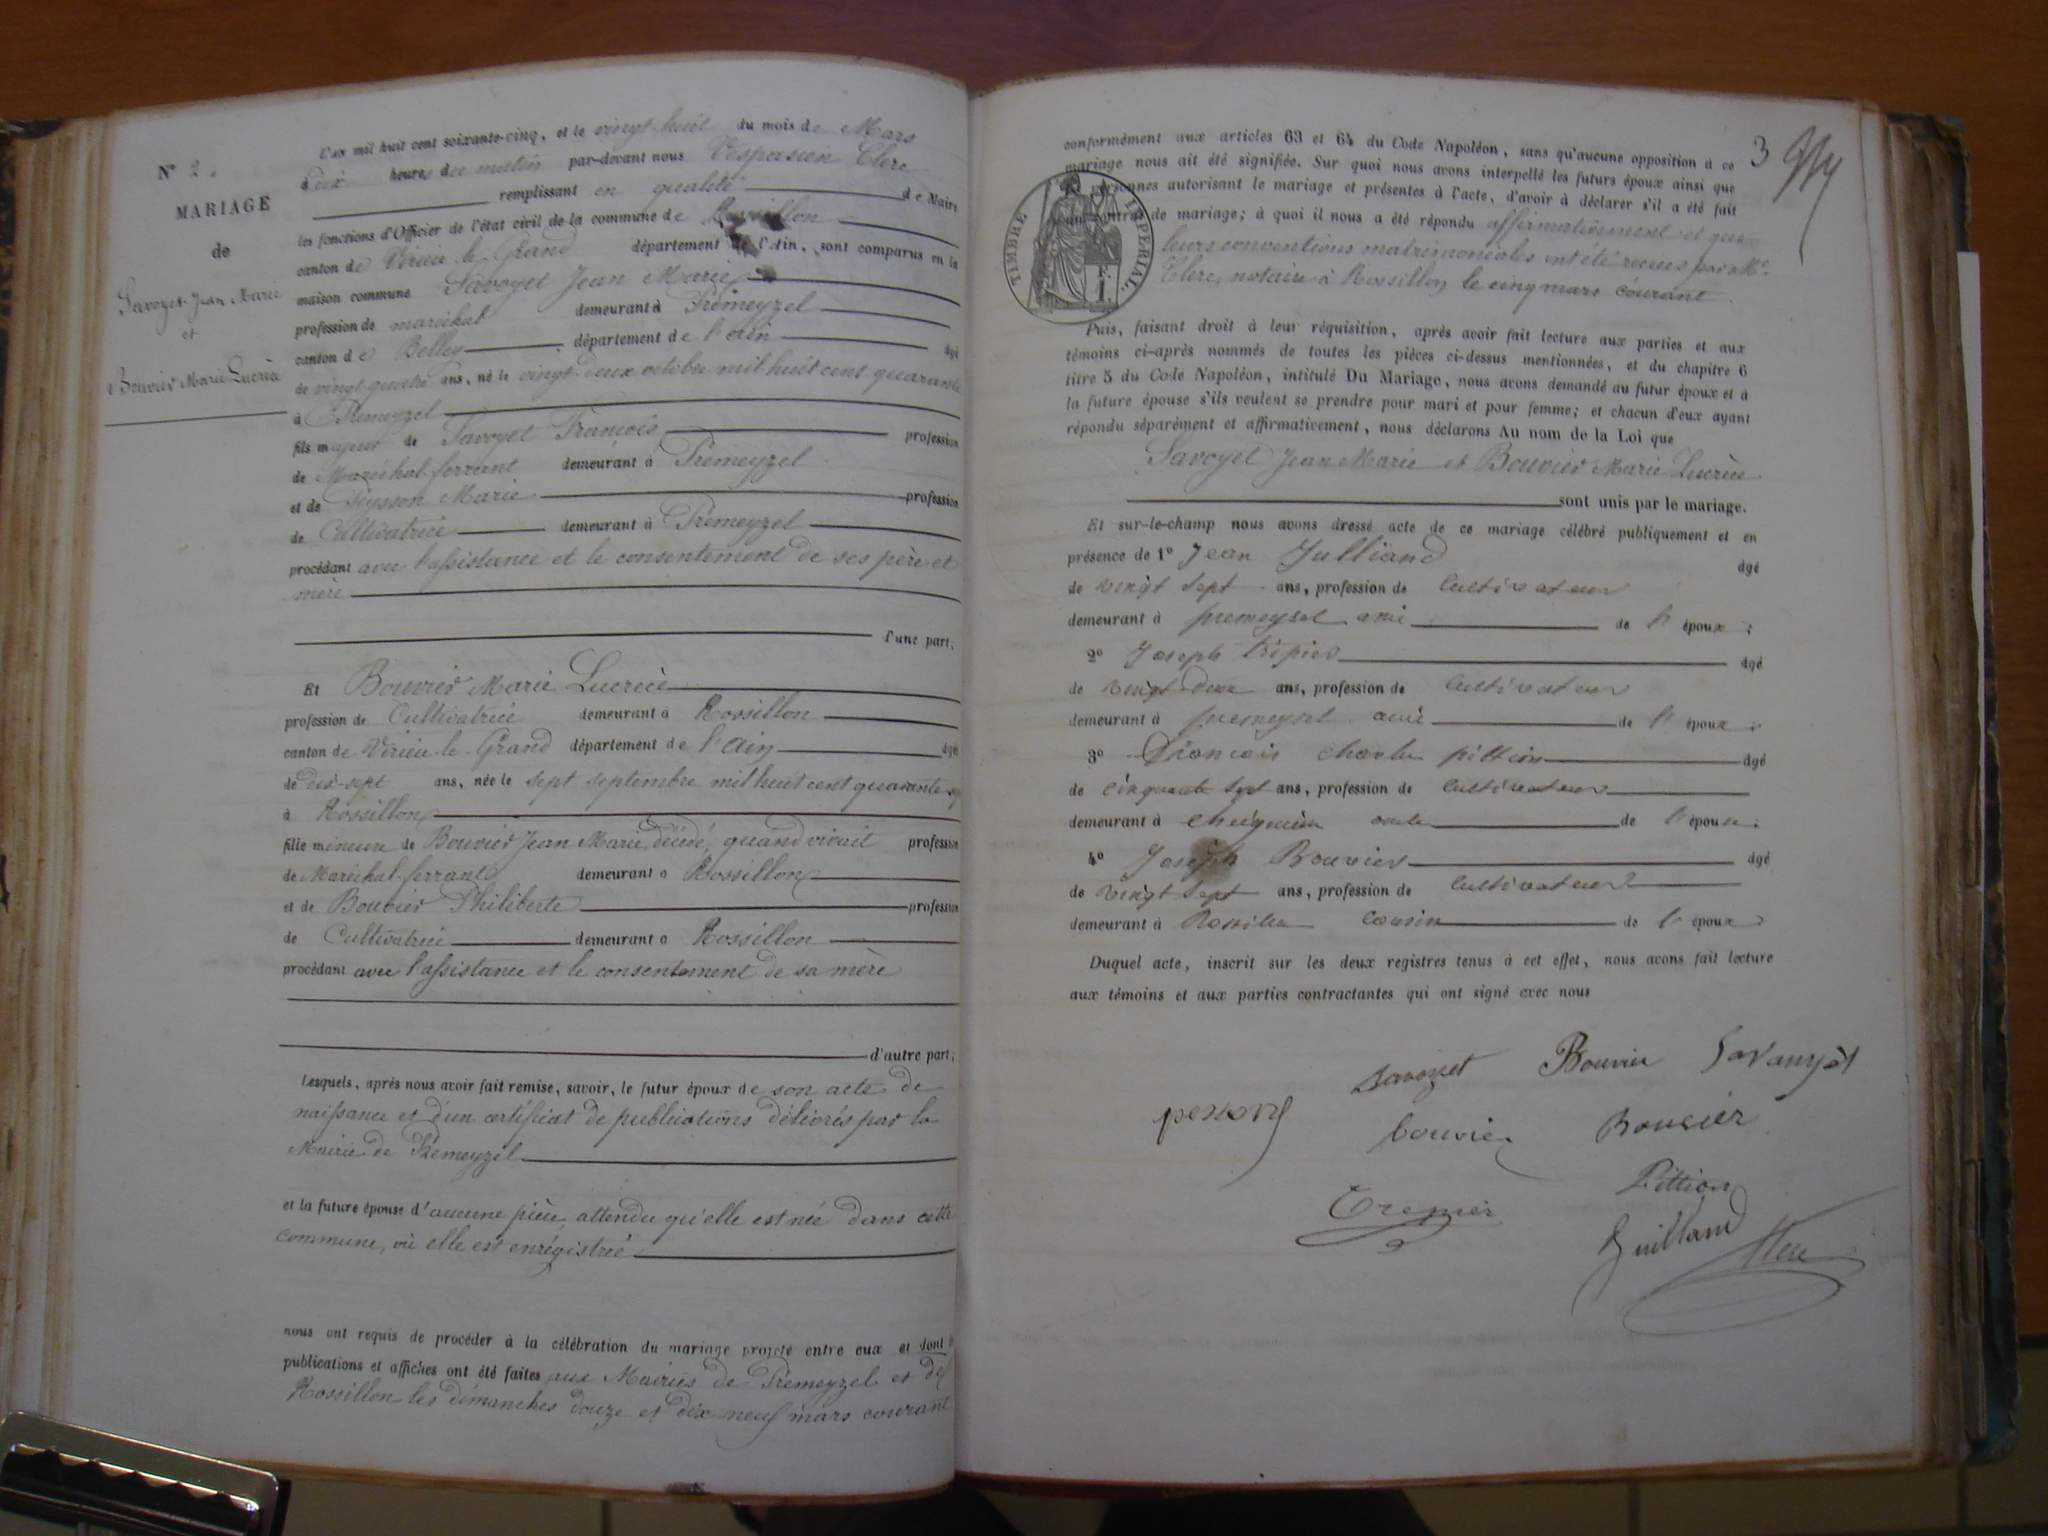 N° 2.
MARIAGE
de
Savoyet Jean Marie
et
Bouvier Marie Lucrèce
L'an mil huit cent soixante-cinq, et le vingt-huit du mois de Mars
à dix heures du matin par-devant nous Vespasien Clerc
remplissant en qualité de Maire
les fonctions d'Officier de l'état civil de la commune de Rossillon
canton de Virieu le Grand département de l'Ain, sont comparus en la
maison commune Savoyet Jean Marie
profession de maréchal demeurant à Prémeyzel
canton de Belley département de l'Ain âgé
de vingt-quatre ans, né le vingt-deux octobre mil huit cent quarante
à Prémeyzel
fils majeur de Savoyet François profession
de Maréchal-ferrant demeurant à Prémeyzel
et de Peysson Marie profession
de Cultivatrice demeurant à Prémeyzel
procédant avec l'assistance et le consentement de ses père et
mère
d'une part;
Et Bouvier Marie Lucrèce
profession de Cultivatrice demeurant à Rossillon
canton de Virieu-le-Grand département de l'Ain âgée
de dix-sept ans, née le sept septembre mil huit cent quarante-sept
à Rossillon
fille mineure de Bouvier Jean Marie, décédé, quand vivait profession
de Maréchal-ferrant demeurant à Rossillon
et de Bouvier Philiberte profession
de Cultivatrice demeurant à Rossillon
procédant avec l'assistance et le consentement de sa mère
d'autre part;
Lesquels, après nous avoir fait remise, savoir, le futur époux de son acte de
naissance et d'un certificat de publications délivrés par la
Mairie de Prémeyzel
et la future épouse d'aucune pièce, attendu qu'elle est née dans cette
commune, où elle est enrégistrée
nous ont requis de procéder à la célébration du mariage projeté entre eux et dont
publications et affiches ont été faites aux Mairies de Prémeyzel et de
Rossillon les dimanches douze et dix neuf mars courant
3
conformément aux articles 63 et 64 du Code Napoléon, sans qu'aucune opposition à ce
mariage nous ait été signifiée. Sur quoi nous avons interpellé les futurs époux ainsi que
personnes autorisant le mariage et présentes à l'acte, d'avoir à déclarer s'il a été fait
un contrat de mariage; à quoi il nous a été répondu affirmativement et que
leurs conventions matrimoniales ont été reçues par Me.
Clerc, notaire à Rossillon le cinq mars courant.
TIMBRE IMPERIAL.
F. 1
Puis, faisant droit à leur réquisition, après avoir fait lecture aux parties et aux
témoins ci-après nommés de toutes les pièces ci-dessus mentionnées, et du chapitre 6
titre 5 du Code Napoléon, intitulé Du Mariage, nous avons demandé au futur époux et à
la future épouse s'ils veulent se prendre pour mari et pour femme; et chacun d'eux ayant
répondu séparément et affirmativement, nous déclarons Au nom de la Loi que
Savoyet Jean Marie et Bouvier Marie Lucrèce
sont unis par le mariage.
Et sur-le-champ nous avons dressé acte de ce mariage célébré publiquement et en
présence de 1° Jean Julliand âgé
de vingt sept ans, profession de Cultivateur
demeurant à premeysel ami de l' époux;
2° Joseph trépier âgé
de vingt deux ans, profession de Cultivateur
demeurant à premeysel ami de l' époux;
3° François charles pittion âgé
de cinquante sept ans, profession de Cultivateur
demeurant à cheigneux oncle de l' épouse;
4° Joseph Bouvier âgé
de vingt sept ans, profession de Cultivateur
demeurant à Rossillon cousin de l' époux
Duquel acte, inscrit sur les deux registres tenus à cet effet, nous avons fait lecture
aux témoins et aux parties contractantes qui ont signé avec nous
Savoyet Bouvier Savauyet
bouvier Bouvier
Pittion
Trepier
Guilland Clerc